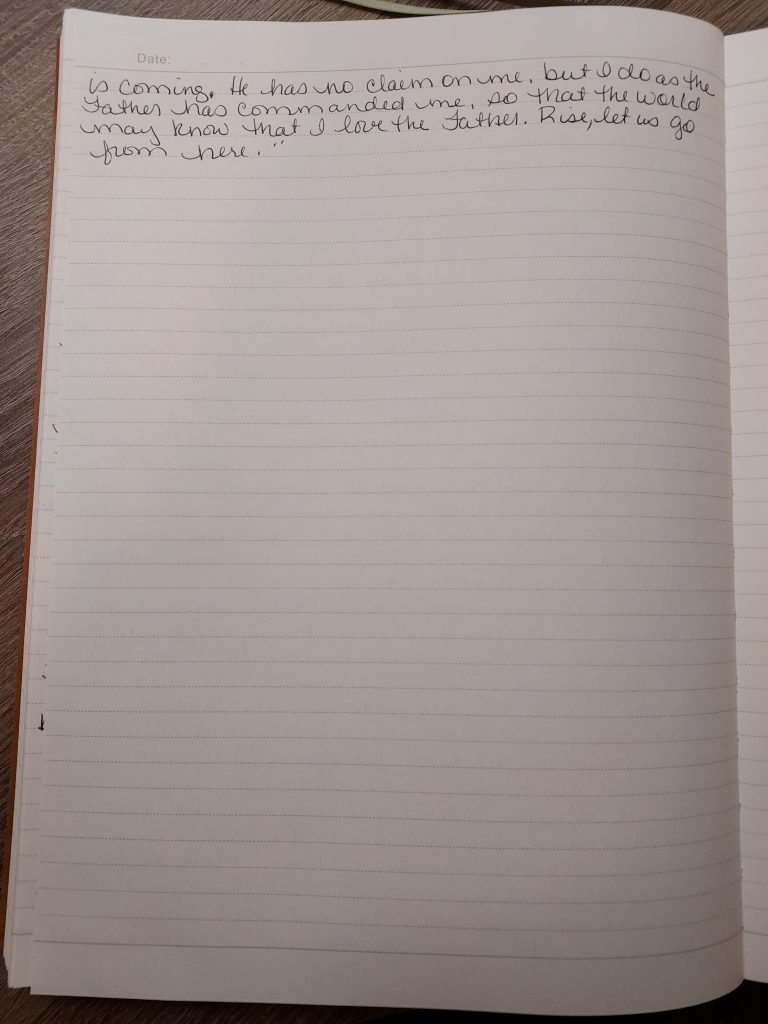 Date:
is coming. He has no claim on me, but I do as the
Father has commanded me, so that the world
may know that I love the Father. Rise, let us go
from here."